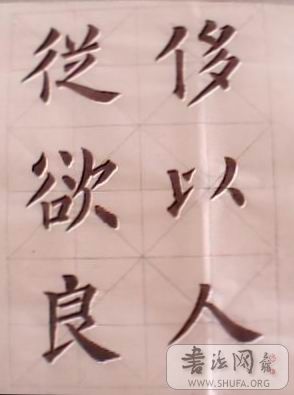 侈以人
従欲良
书法网
WWW.SHUFA.ORG